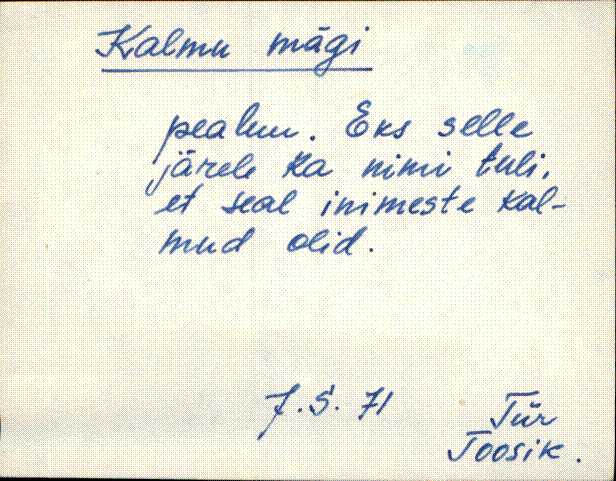 Kalmu mägi
pealuu. Eks selle
järele ka nimi tuli,
et seal inimeste kal-
mud olid.
J. S. 71
Tiir
Toosik.